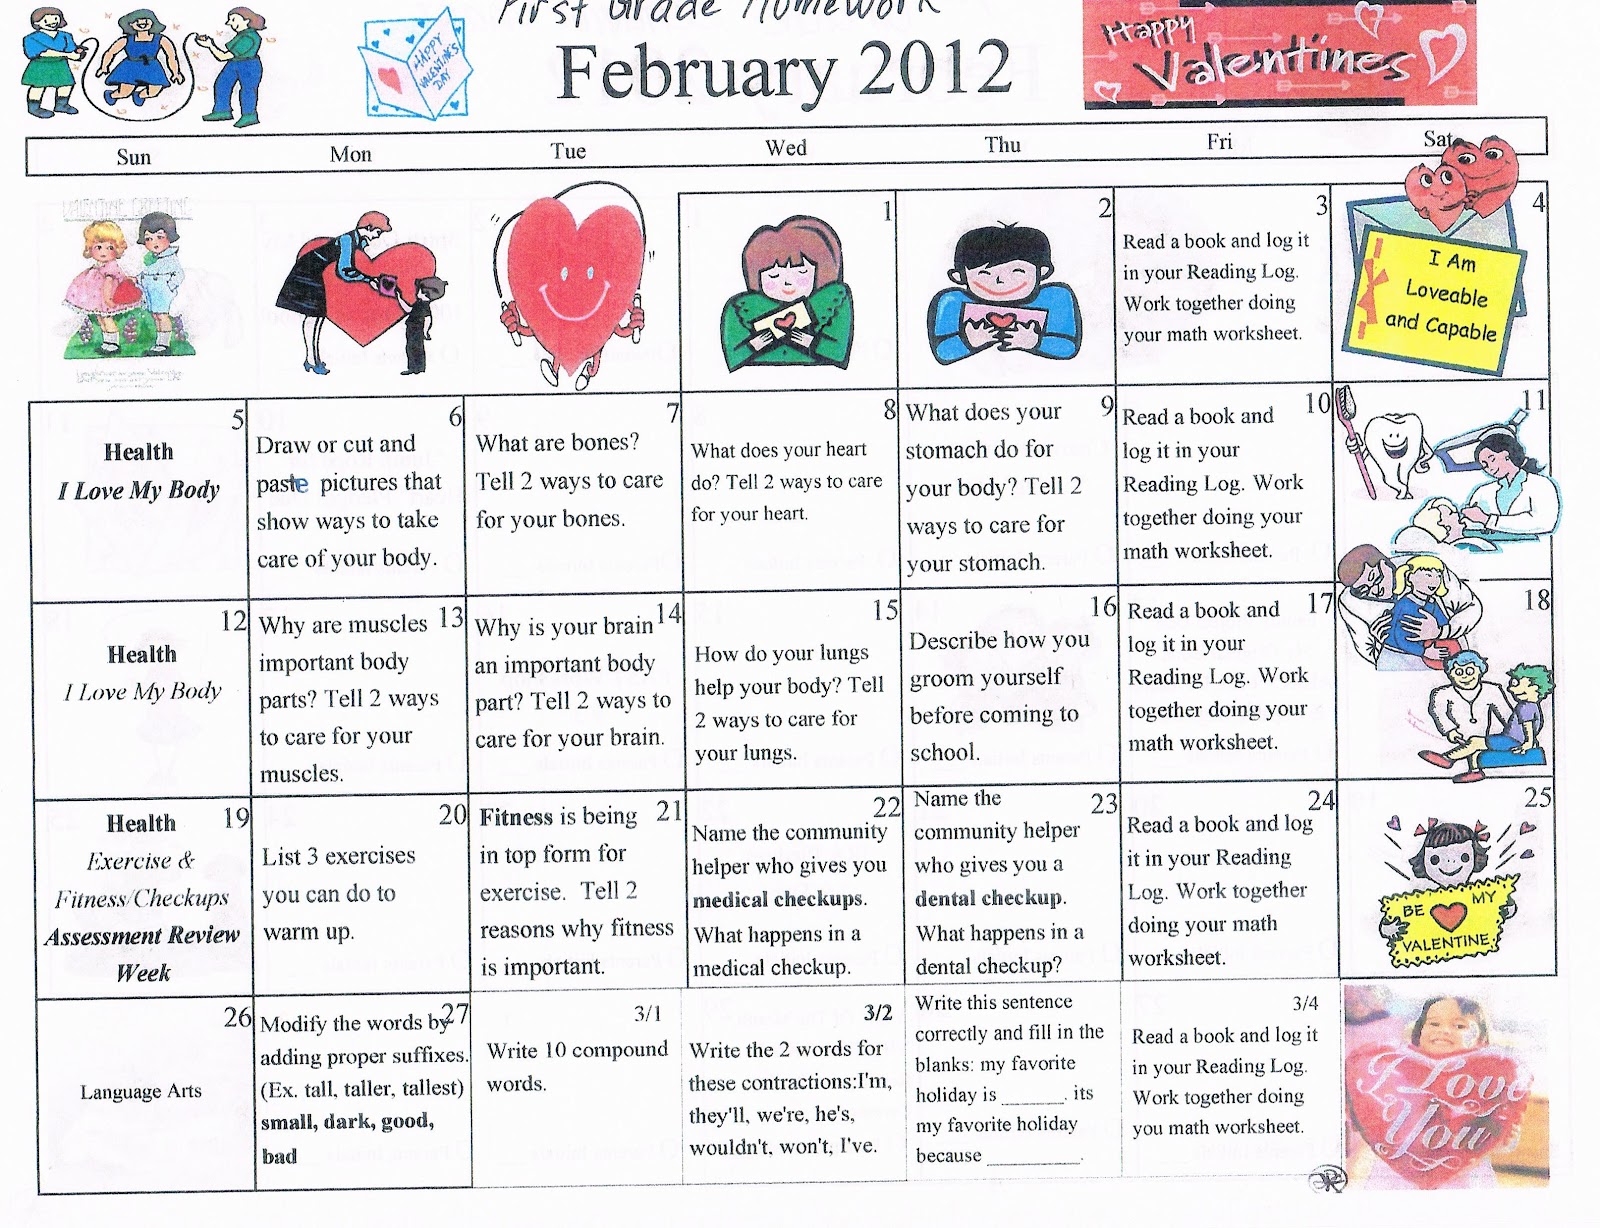 First Grade Homework
February 2012
HAPPY
VALENTINE'S
DAY
Happy
Valentines
Sun
Mon
Tue
Wed
Thu
Fri
Sat
VALENTINE GREETING
1
2
3
Read a book and log it
in your Reading Log.
Work together doing
your math worksheet.
4
I Am
Loveable
and Capable
5
Health
I Love My Body
6
Draw or cut and
paste pictures that
show ways to take
care of your body.
7
What are bones?
Tell 2 ways to care
for your bones.
8
What does your heart
do? Tell 2 ways to care
for your heart.
9
What does your
stomach do for
your body? Tell 2
ways to care for
your stomach.
10
Read a book and
log it in your
Reading Log. Work
together doing your
math worksheet.
11
12
Health
I Love My Body
13
Why are muscles
important body
parts? Tell 2 ways
to care for your
muscles.
14
Why is your brain
an important body
part? Tell 2 ways to
care for your brain.
15
How do your lungs
help your body? Tell
2 ways to care for
your lungs.
16
Describe how you
groom yourself
before coming to
school.
17
Read a book and
log it in your
Reading Log. Work
together doing your
math worksheet.
18
19
Health
Exercise &
Fitness/Checkups
Assessment Review
Week
20
List 3 exercises
you can do to
warm up.
21
Fitness is being
in top form for
exercise. Tell 2
reasons why fitness
is important.
22
Name the community
helper who gives you
medical checkups.
What happens in a
medical checkup.
23
Name the
community helper
who gives you a
dental checkup.
What happens in a
dental checkup?
24
Read a book and log
it in your Reading
Log. Work together
doing your math
worksheet.
25
BE MY
VALENTINE
26
Language Arts
27
Modify the words by
adding proper suffixes.
(Ex. tall, taller, tallest)
small, dark, good,
bad
3/1
Write 10 compound
words.
3/2
Write the 2 words for
these contractions:I'm,
they'll, we're, he's,
wouldn't, won't, I've.
Write this sentence
correctly and fill in the
blanks: my favorite
holiday is ______. its
my favorite holiday
because _________.
3/4
Read a book and log it
in your Reading Log.
Work together doing
you math worksheet.
I Love
You
R